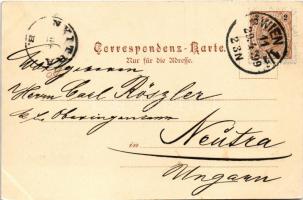 NYITRA
WIEN
2
Correspondenz-Karte.
Nur für die Adresse.
Wohlgeboren
Herrn Carl Röszler
k. k. Oberingenieur
in Neutra
Ungarn